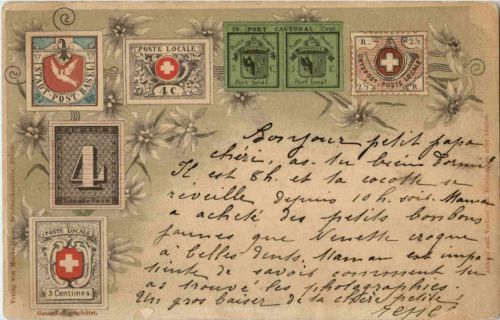 STADT-POST-BASEL
POSTE LOCALE
4 C
10 PORT CANTONAL Cent
Port local
Port local
R. 2½
ORTS POST. POSTE LOCALE
4
POSTE LOCALE
5 Centimes
Gesetzlich geschützt.
Bonjour petit papa
chéri, as-tu bien dormi
Il est 8h. et la cocotte se
réveille depuis 10 h. soir. Maman
a acheté des petits bonbons
jaunes que Nenette croque
à belles dents. Maman est impa
tiente de savoir comment tu
as trouvé les photographies.
Un gros baiser de la chère petite